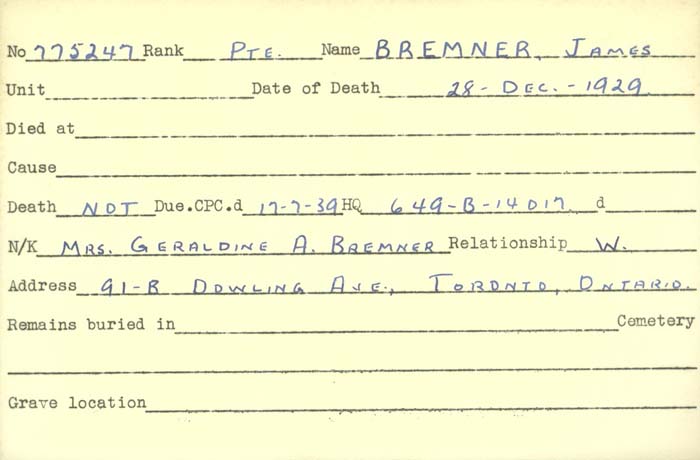 No 775247 Rank PTE. Name BREMNER, JAMES
Unit Date of Death 28-DEC.-1929
Died at
Cause
Death NOT Due.CPC.d 17-7-39 HQ 649-B-14017 d
N/K MRS. GERALDINE A. BREMNER Relationship W.
Address 91-B DOWLING AVE., TORONTO, ONTARIO.
Remains buried in Cemetery
Grave location